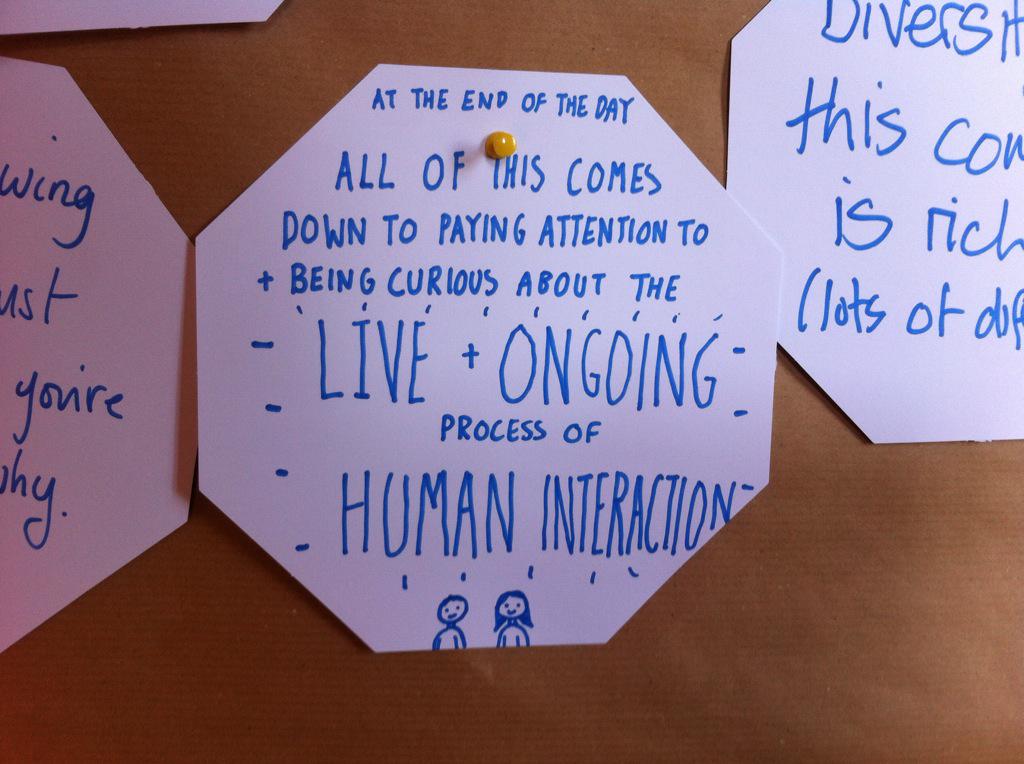 AT THE END OF THE DAY
ALL OF THIS COMES
DOWN TO PAYING ATTENTION TO
+ BEING CURIOUS ABOUT THE
LIVE + ONGOING
PROCESS OF
HUMAN INTERACTION
you're
this
is rich
(lots of